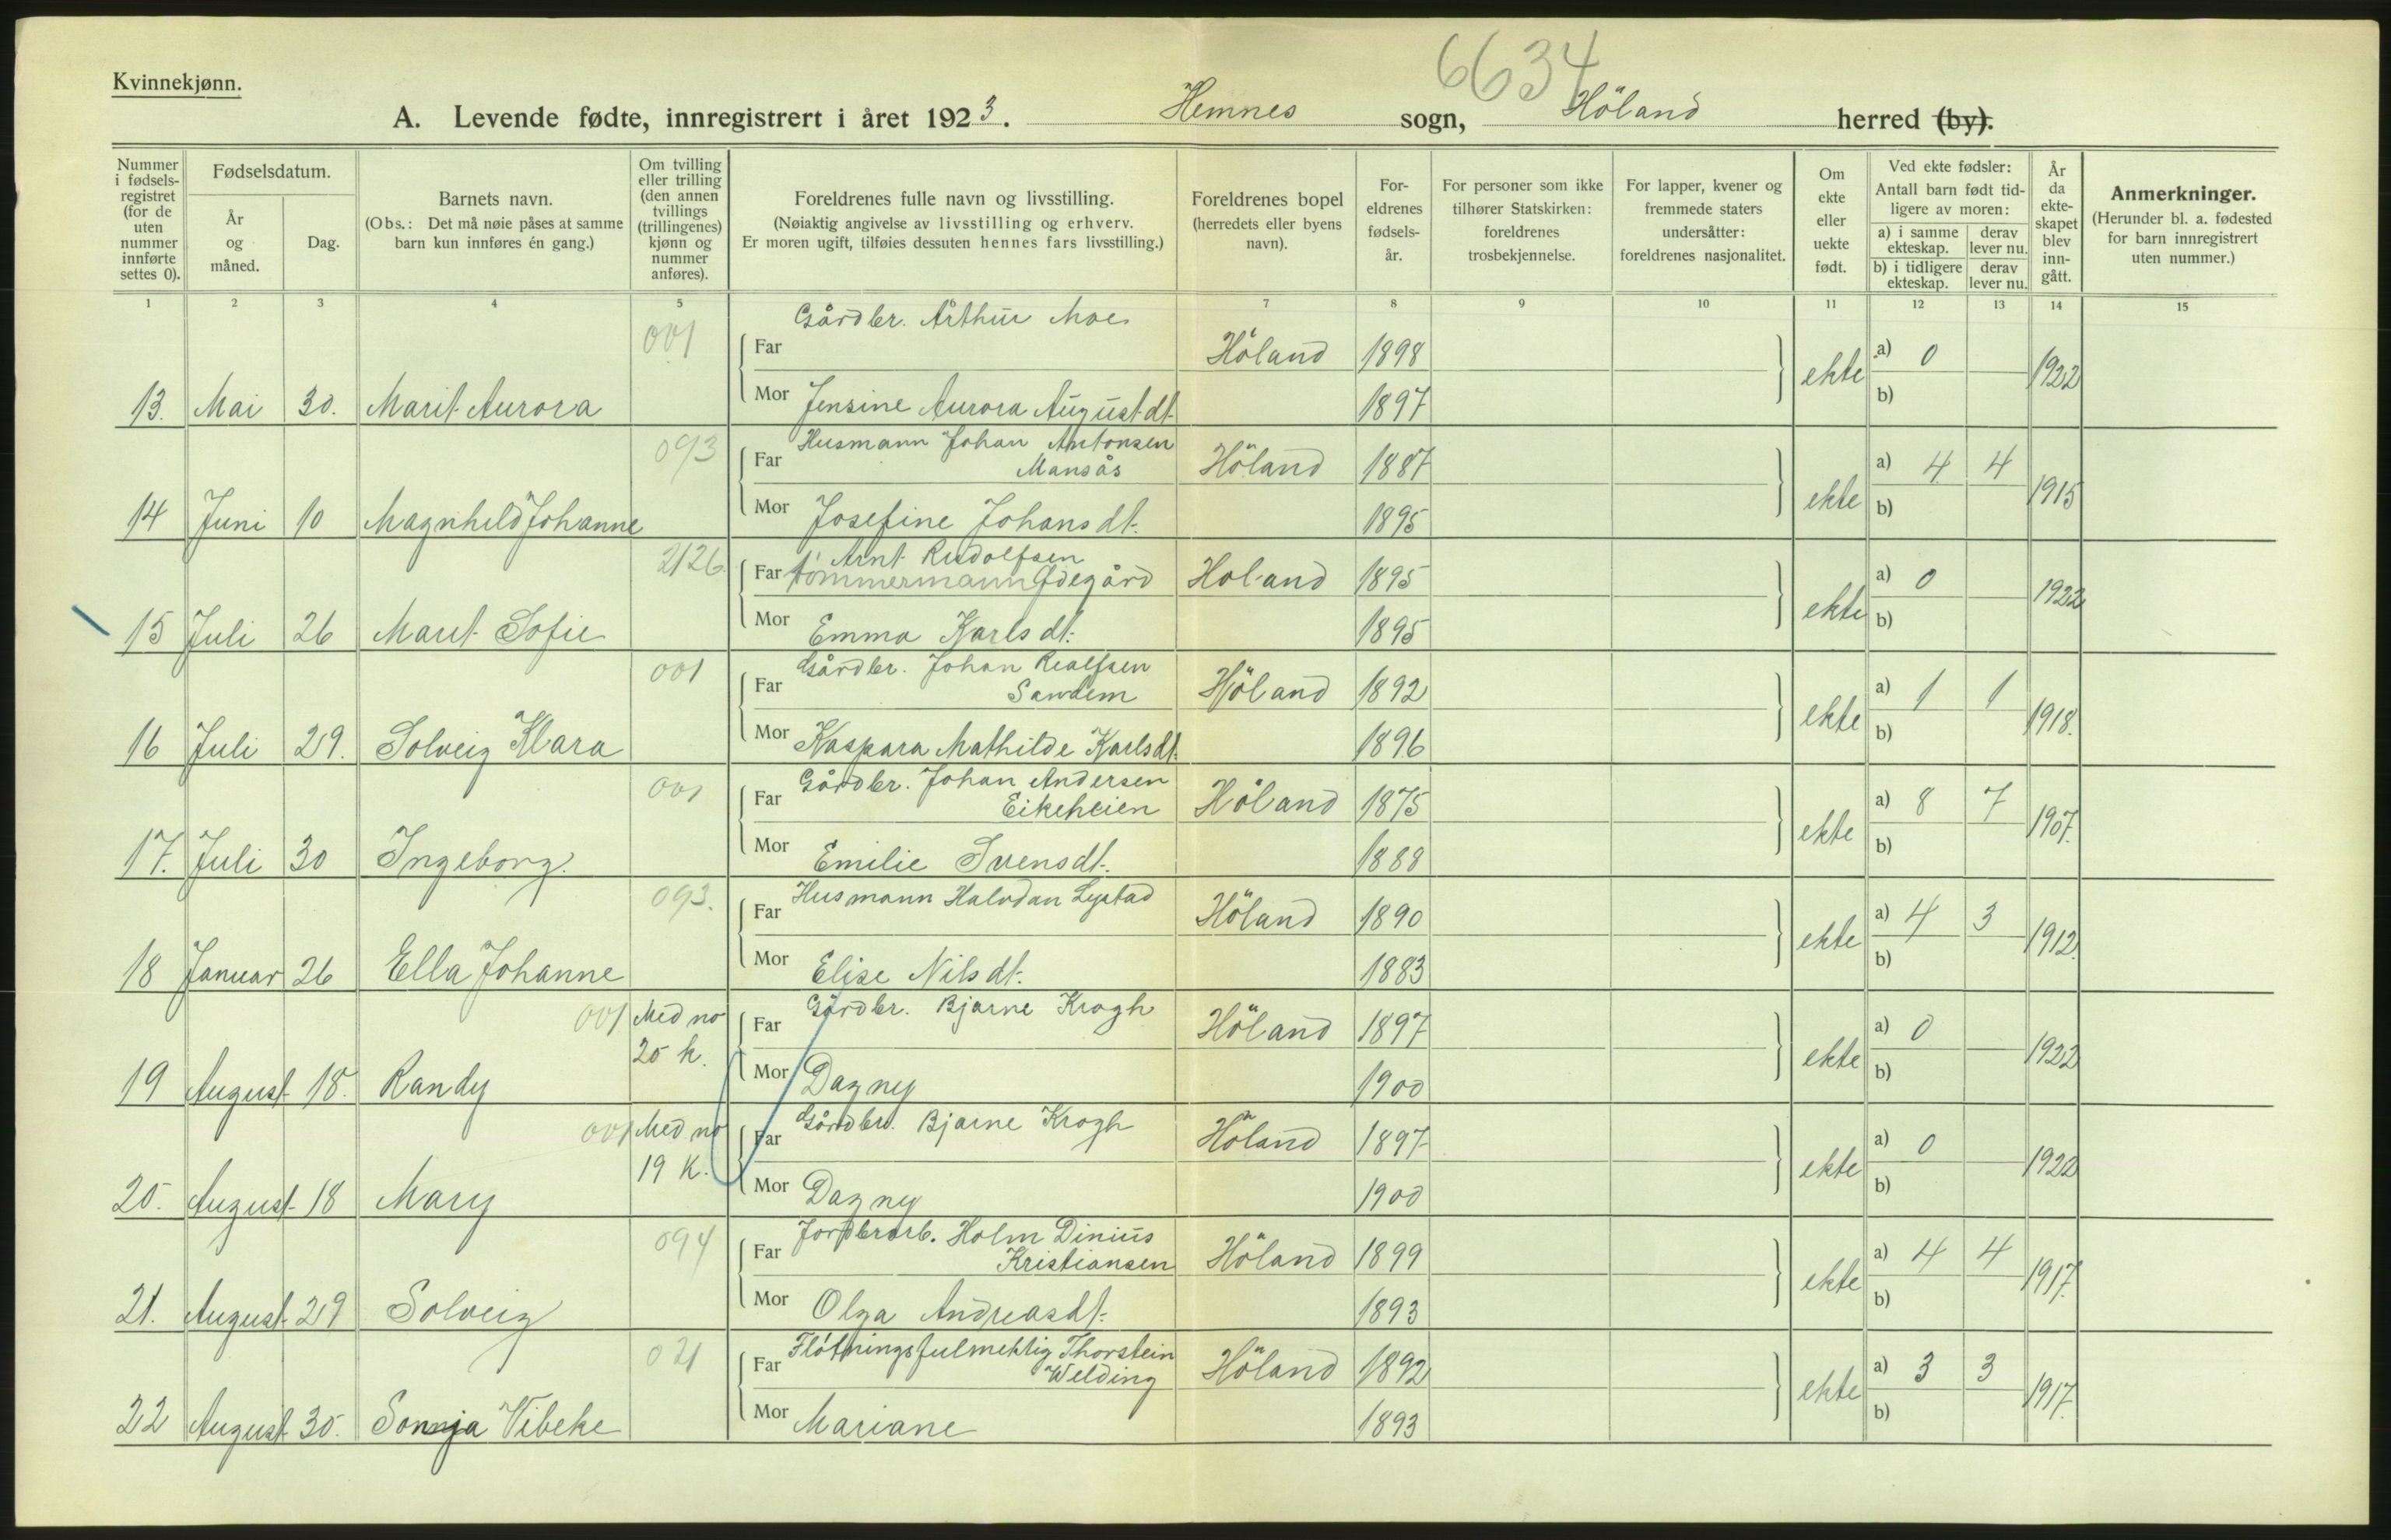 6634
Kvinnekjønn.
A. Levende fødte, innregistrert i året 1923. Hemnes sogn, Höland herred (by).
Nummer i fødsels-registret (for de uten nummer innførte settes 0).
Fødselsdatum.
År og måned.
Dag.
Barnets navn.
(Obs.: Det må nøie påses at samme barn kun innføres én gang.)
Om tvilling eller trilling (den annen tvillings (trillingenes) kjønn og nummer anføres).
Foreldrenes fulle navn og livsstilling.
(Nøiaktig angivelse av livsstilling og erhverv.
Er moren ugift, tilføies dessuten hennes fars livsstilling.)
Foreldrenes bopel (herredets eller byens navn).
For-eldrenes fødsels-år.
For personer som ikke tilhører Statskirken: foreldrenes trosbekjennelse.
For lapper, kvener og fremmede staters undersåtter: foreldrenes nasjonalitet.
Om ekte eller uekte født.
Ved ekte fødsler:
Antall barn født tid-ligere av moren:
a) i samme ekteskap. derav lever nu.
b) i tidligere ekteskap. derav lever nu.
År da ekte-skapet blev inn-gått.
Anmerkninger.
(Herunder bl. a. fødested for barn innregistrert uten nummer.)
1 2 3 4 5 7 8 9 10 11 12 13 14 15
001 Gårdbr. Arthur Moe
Far Höland 1898 a) 0
13. Mai 30. Marit Aurora Mor Jensine Aurora August dt. 1897 ekte b) 1922
093 Husmann Johan Antonsen
Far Mansås Höland 1887 a) 4 4
14 Juni 10 Magnhild Johanne Mor Josefine Johans dt. 1895 ekte b) 1915
2126. Arnt Rudolfsen
Far tömmermann Ödegård Holand 1895 a) 0
15 Juli 26 Marit Sofie Mor Emma Karls dt. 1895 ekte b) 1922
001 Gårdbr. Johan Realfsen
Far Sandem Höland 1892 a) 1 1
16 Juli 29. Solveig Klara Mor Kaspara Mathilde Karlsdt. 1896 ekte b) 1918.
001 Gårdbr. Johan Andersen
Far Eikeheien Höland 1875 a) 8 7
17. Juli 30 Ingeborg. Mor Emilie Svensdt. 1888 ekte b) 1907.
093. Husmann Halvdan Lystad
Far Höland 1890 a) 4 3
18 Januar 26 Ella Johanne Mor Elise Nilsdt. 1883 ekte b) 1912.
001 Med no 20 k. Gårdbr. Bjarne Krogh
Far Höland 1897 a) 0
19 August 18. Randy Mor Dagny 1900 ekte b) 1922
001 Med no 19 K. Gårdbr. Bjarne Krogh
Far Höland 1897 a) 0
20. August 18 Mary Mor Dagny 1900 ekte b) 1922
094 Jordbrarb. Holm Dinius
Far Kristiansen Höland 1899 a) 4 4
21. August 29 Solveig Mor Olga Andreasdt. 1893 ekte b) 1917.
021 Flötningsfulmektig Thorstein
Far Welding Höland 1892 a) 3 3
22 August 30. Sonja Vibeke Mor Mariane 1893 ekte b) 1917.